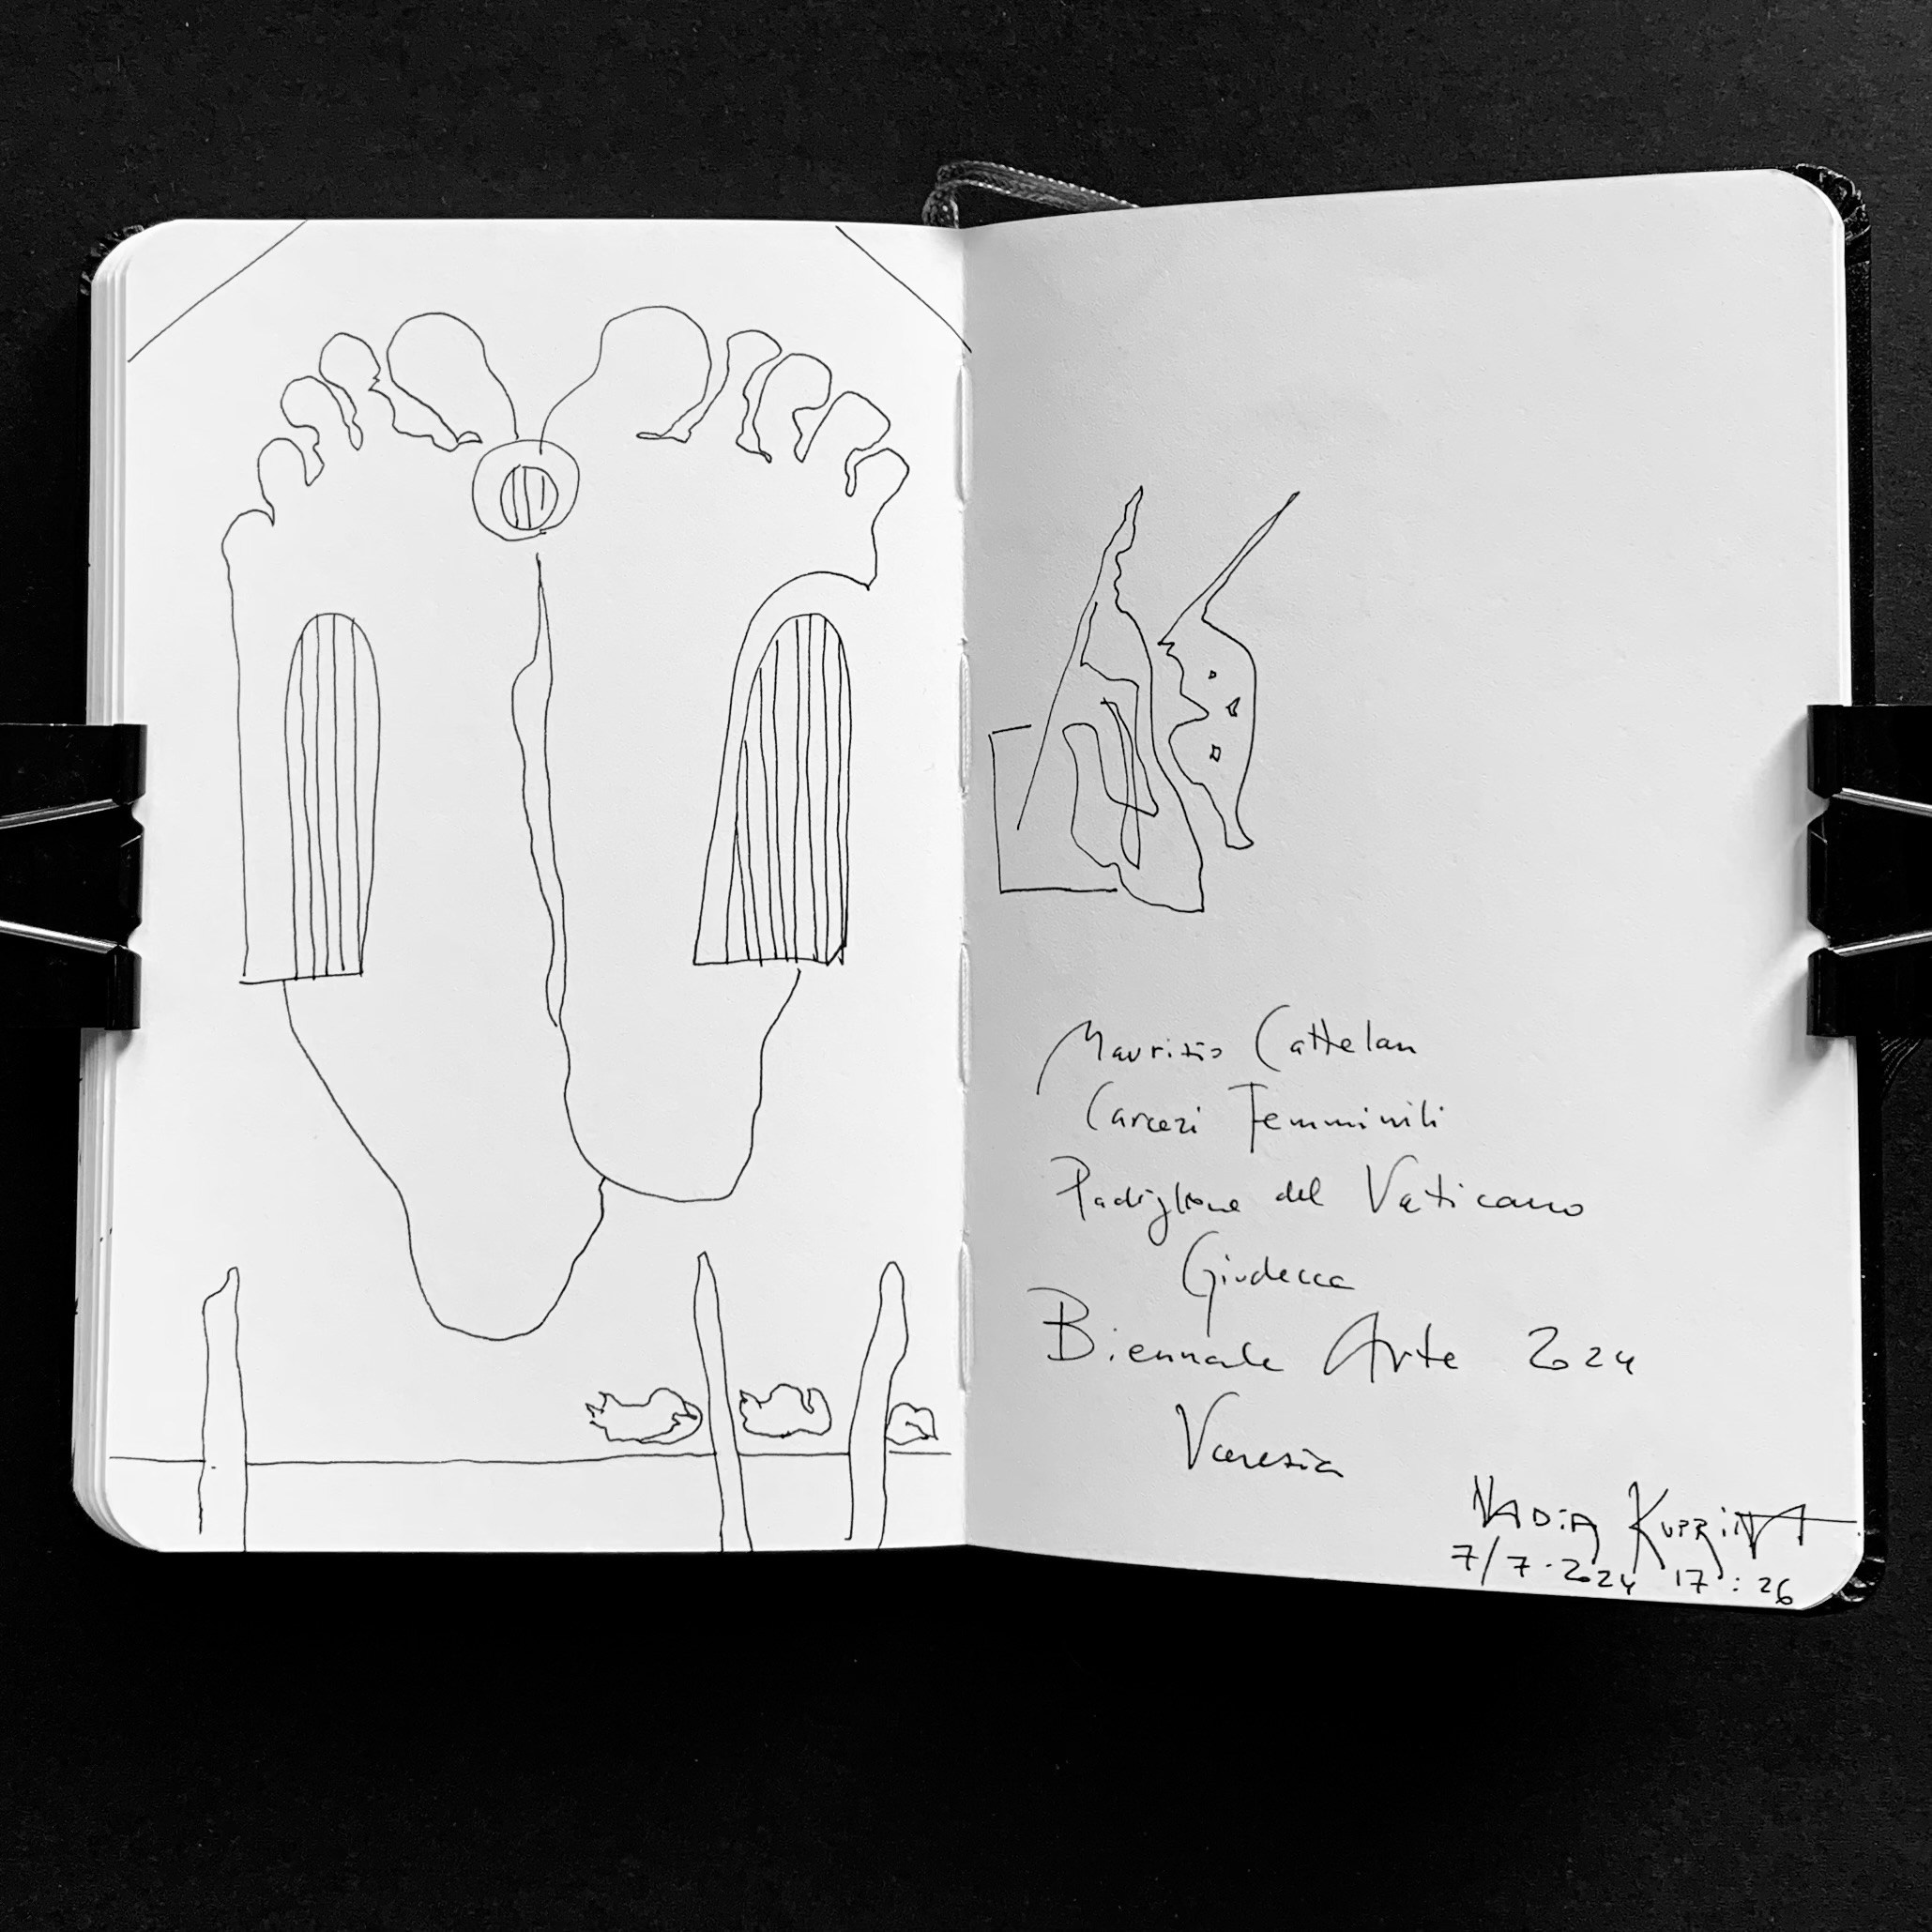 Maurizio Cattelan
Carceri Femminili
Padiglione del Vaticano
Giudecca
Biennale Arte 2024
Venezia
NADiA KUPRiNA
7/7.2024 17:26